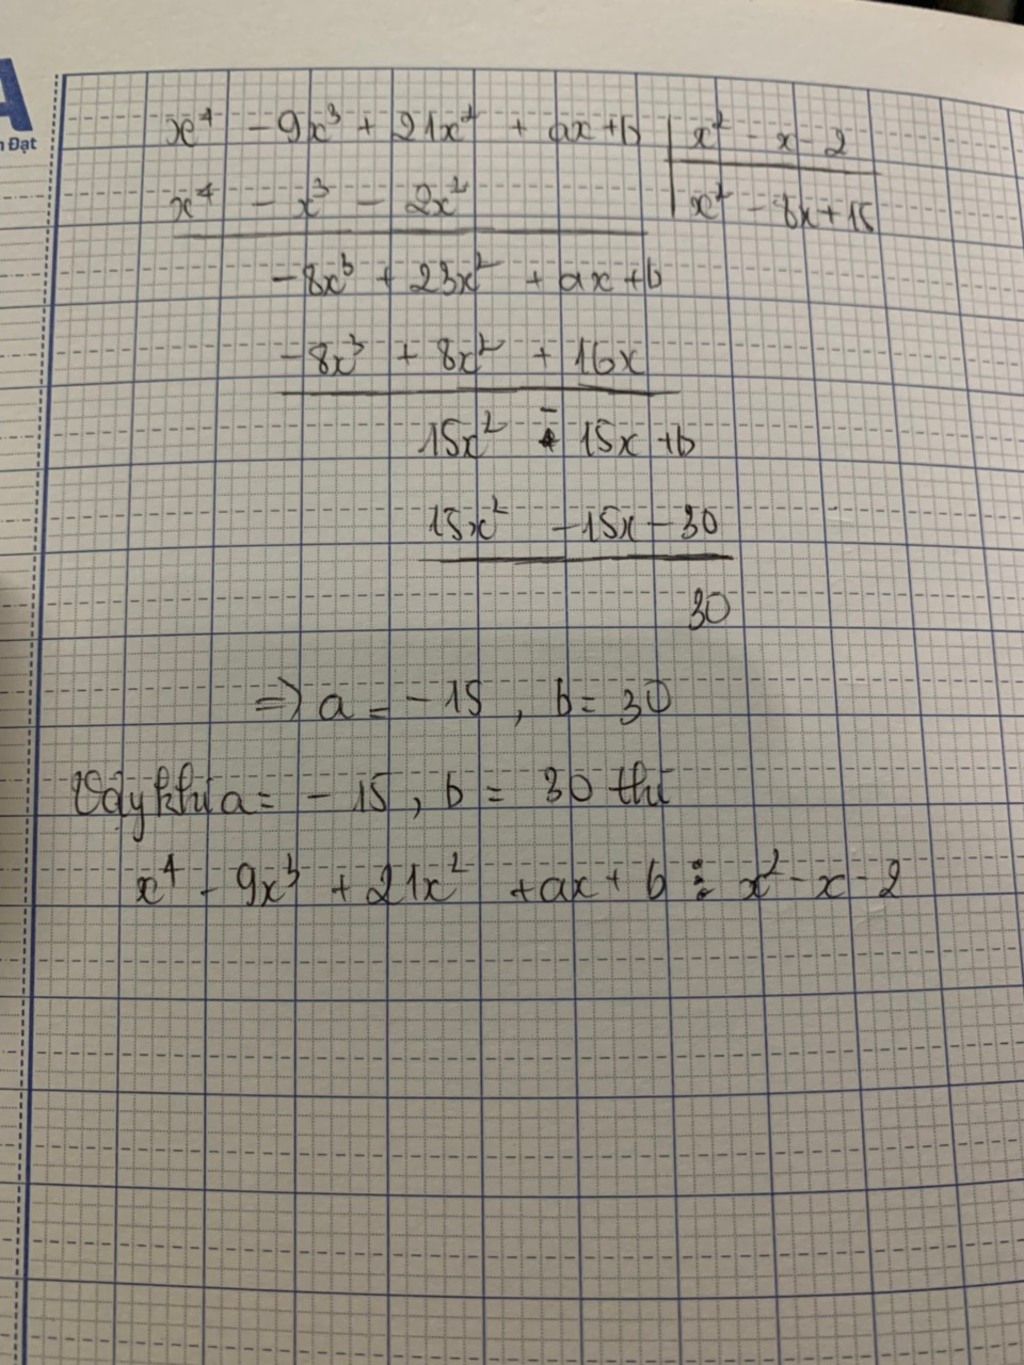 A
n Đạt
x⁴ - 9x³ + 21x² + ax + b | x² - x - 2
x⁴ - x³ - 2x² | x² - 8x + 15
-8x³ + 23x² + ax + b
-8x³ + 8x² + 16x
15x² - 15x + b
15x² - 15x - 30
30
=> a = -15, b = 30
Vậy khi a = -15, b = 30 thì
x⁴ - 9x³ + 21x² + ax + b ⋮ x² - x - 2